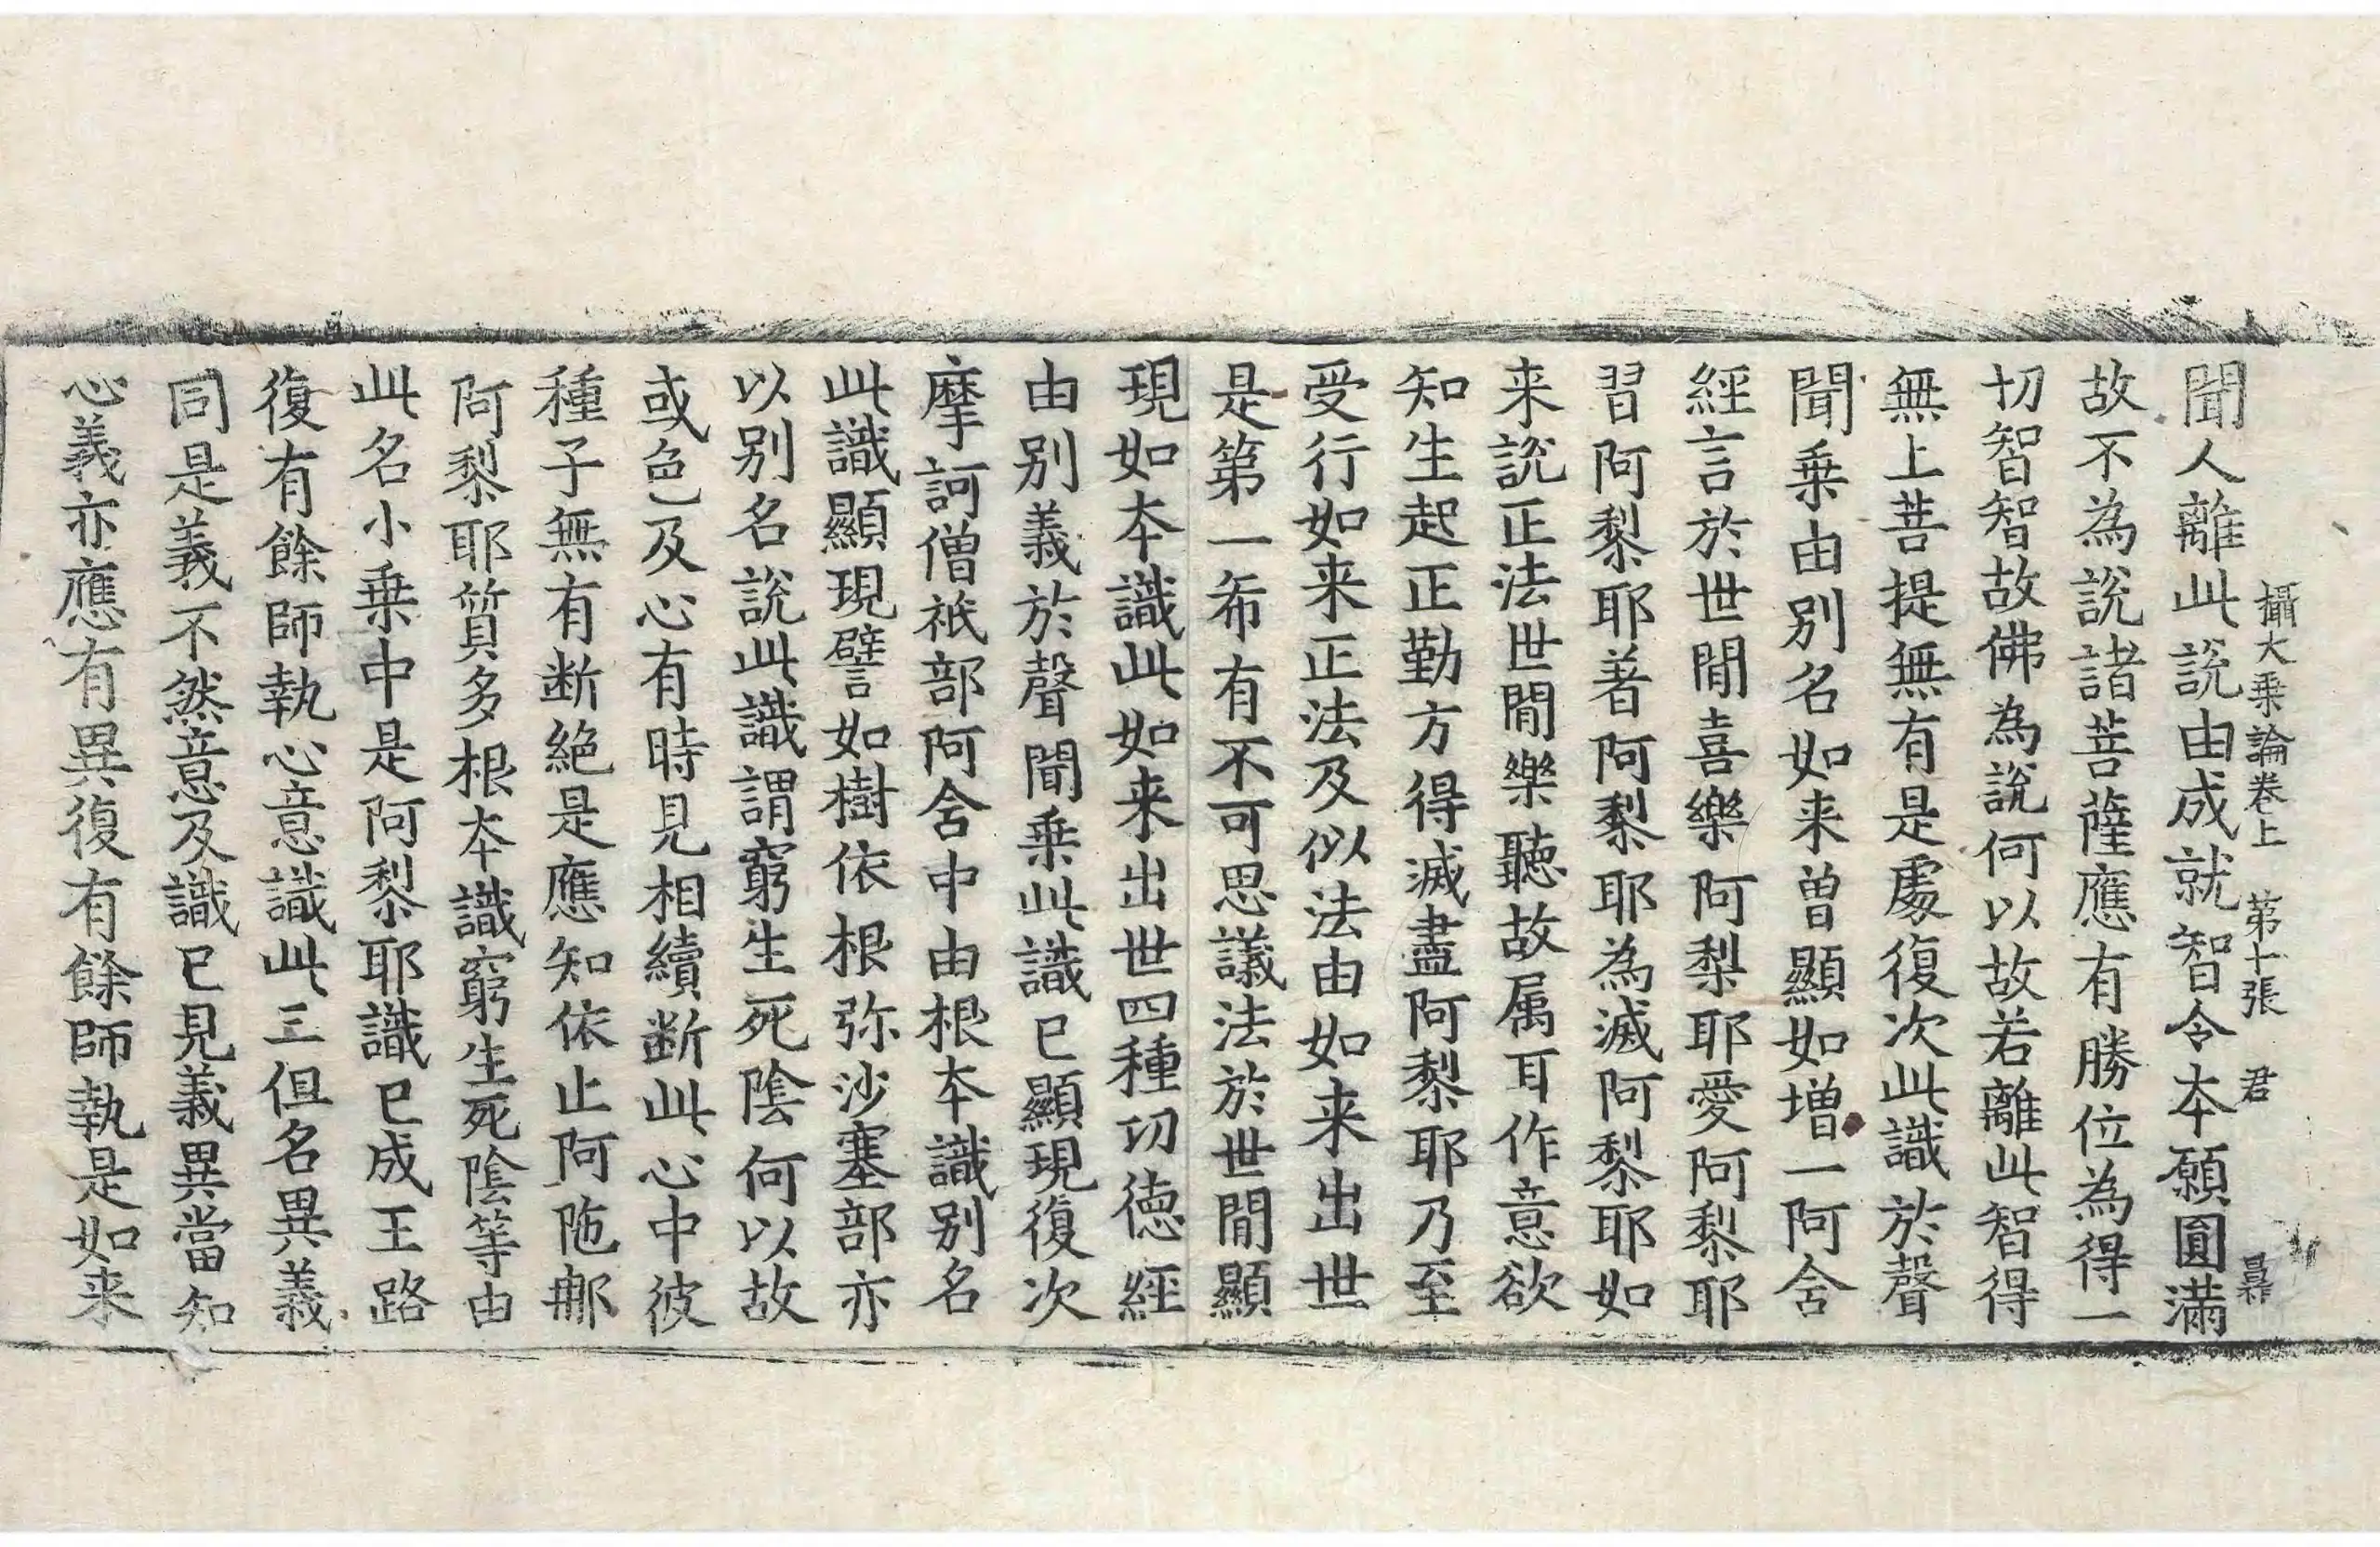 攝大乗論卷上　第十張　君
聞人離此說由成就智令本願圓滿
故不為說諸菩薩應有勝位為得一
切智智故佛為說何以故若離此智得
無上菩提無有是處復次此識於聲
聞乗由別名如来曽顯如增一阿含
經言於世間喜樂阿梨耶愛阿梨耶
習阿梨耶著阿梨耶為滅阿梨耶如
来說正法世間樂聽故属耳作意欲
知生起正勤方得滅盡阿梨耶乃至
受行如来正法及似法由如来出世
是第一希有不可思議法於世間顯
現如本識此如来出世四種功德經
由別義於聲聞乗此識已顯現復次
摩訶僧祇部阿含中由根本識別名
此識顯現譬如樹依根弥沙塞部亦
以別名說此識謂窮生死陰何以故
或色及心有時見相續断此心中彼
種子無有断絕是應知依止阿陁那
阿梨耶質多根本識窮生死陰等由
此名小乗中是阿梨耶識已成王路
復有餘師執心意識此三但名異義
同是義不然意及識已見義異當知
心義亦應有異復有餘師執是如来